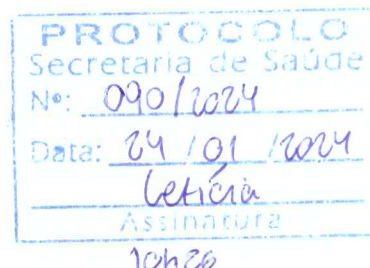 PROTOCOLO
Secretaria de Saúde
Nº: 090/2024
Data: 24 / 01 / 2024
Letícia
Assinatura
10h20